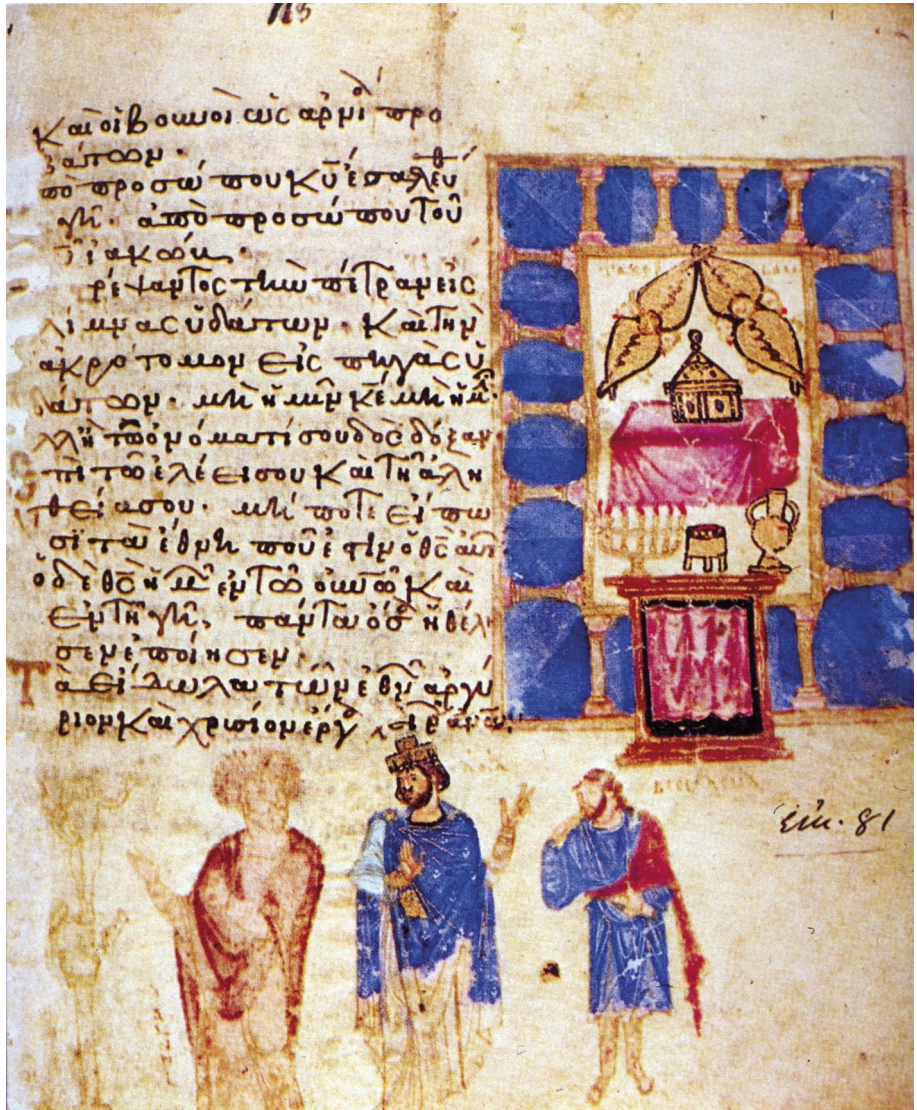 Καὶ οἱ βουνοὶ ὡς ἀρνί προ
βάτων·
πὸ προσώπου κῡ ἐσαλεύθ
γῆ· ἀπὸ προσώπου τοῦ
ἰακώβ·
ρέψαντος τὴν πέτραν εἰς
λίμνας ὑδάτων· Καὶ τὴν
ἀκρότομον εἰς πηγὰς ὑ
δάτων· μὴ ἡμῖν κε μὴ ἡμ·
λλ ἢ τῶ ὀνόματί σου δὸς δόξαν
πὶ τῶ ἐλέει σου Καὶ τῆ ἀλη
θεία σου· μή ποτε εἴπω
σι τὰ ἔθνη ποῦ ἐστιν ὁ θς αὐτ
ὁ δὲ θς ἡμ ἐν τῶ οὐνῶ Καὶ
ἐν τῆ γῆ, πάντα ὅσ ἠθέλη
σεν ἐποίησεν·
Τὰ εἴδωλα τῶν ἐθν ἀργύ
ριον Καὶ χρυσίον ἔργ χειρ ἀνων
εἰκ. 81